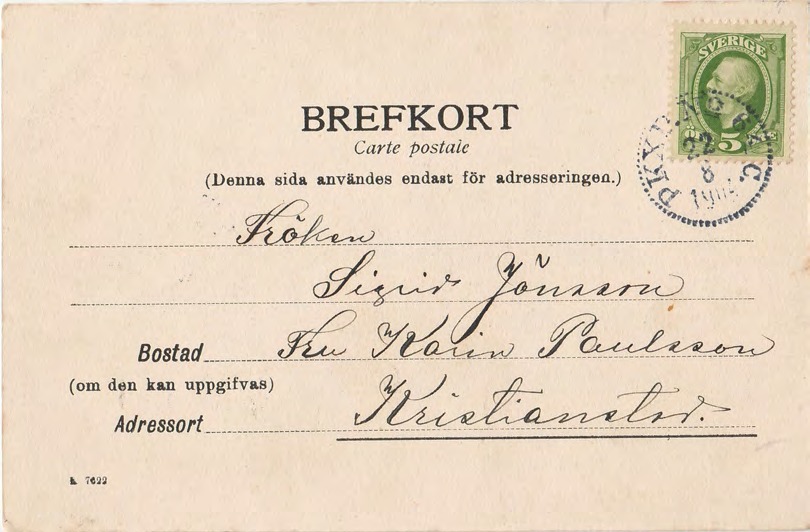 SVERIGE
5
BREFKORT
Carte postale
(Denna sida användes endast för adresseringen.)
PKXP. Nº
8
Fröken
Sigrid Jönsson
Bostad Fru Karin Paulsson
(om den kan uppgifvas)
Adressort Kristianstad.
7622